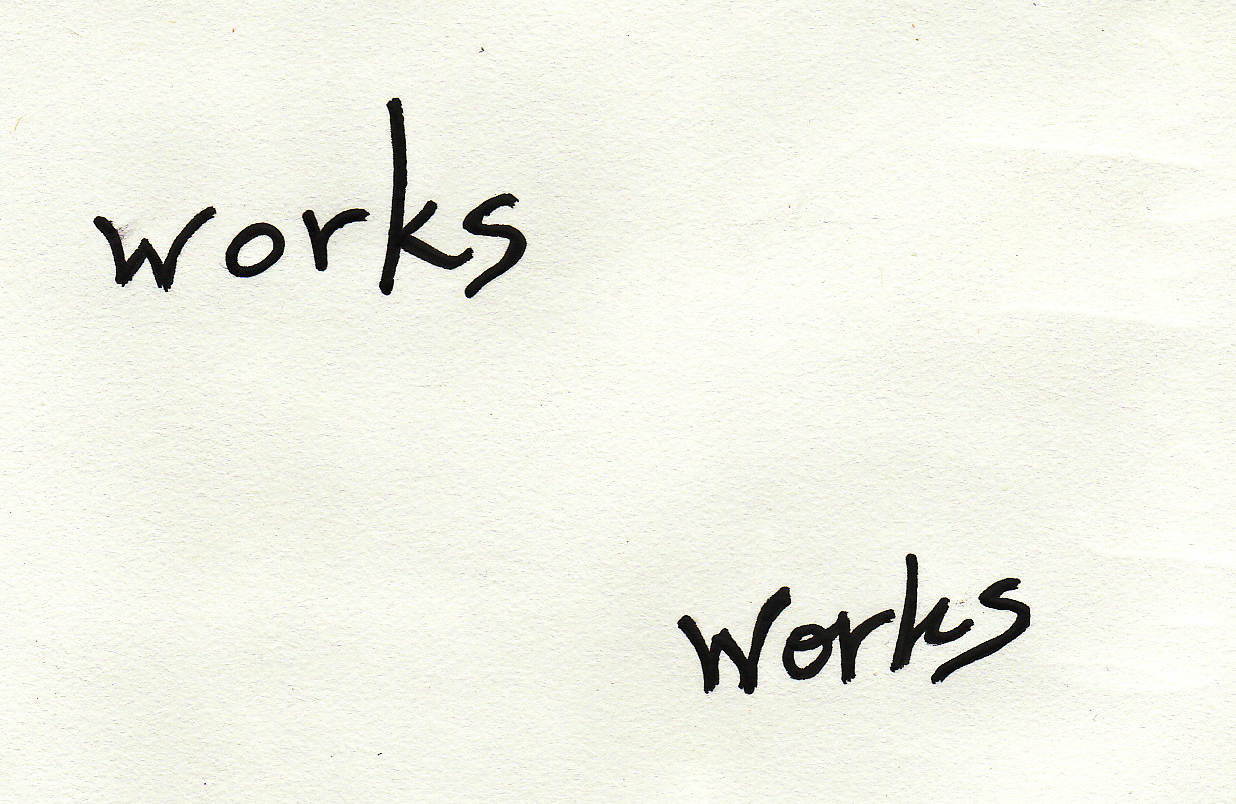 works
works